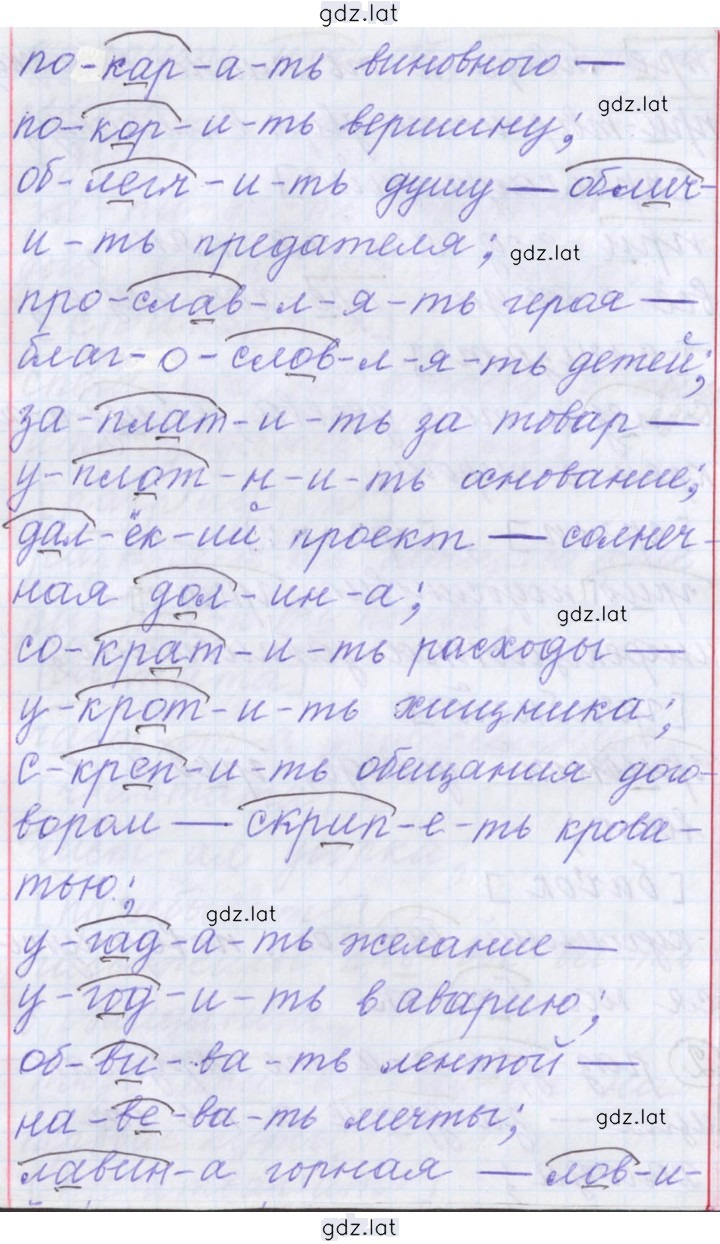 gdz.lat
по-кар-а-ть виновного —
gdz.lat
по-кор-и-ть вершину;
об-легч-и-ть душу — облич-
и-ть предателя;
gdz.lat
про-слав-л-я-ть героя —
благ-о-слов-л-я-ть детей;
за-плат-и-ть за товар —
у-плот-н-и-ть основание;
дал-ёк-ий проект — солнеч-
ная дол-ин-а;
gdz.lat
со-крат-и-ть расходы —
у-крот-и-ть хищника;
с-креп-и-ть обещания дого-
вором — скрип-е-ть крова-
тью;
gdz.lat
у-гад-а-ть желание —
у-год-и-ть в аварию;
об-ви-ва-ть лентой —
на-ве-ва-ть мечты;
gdz.lat
лавин-а горная — лов-и-
gdz.lat